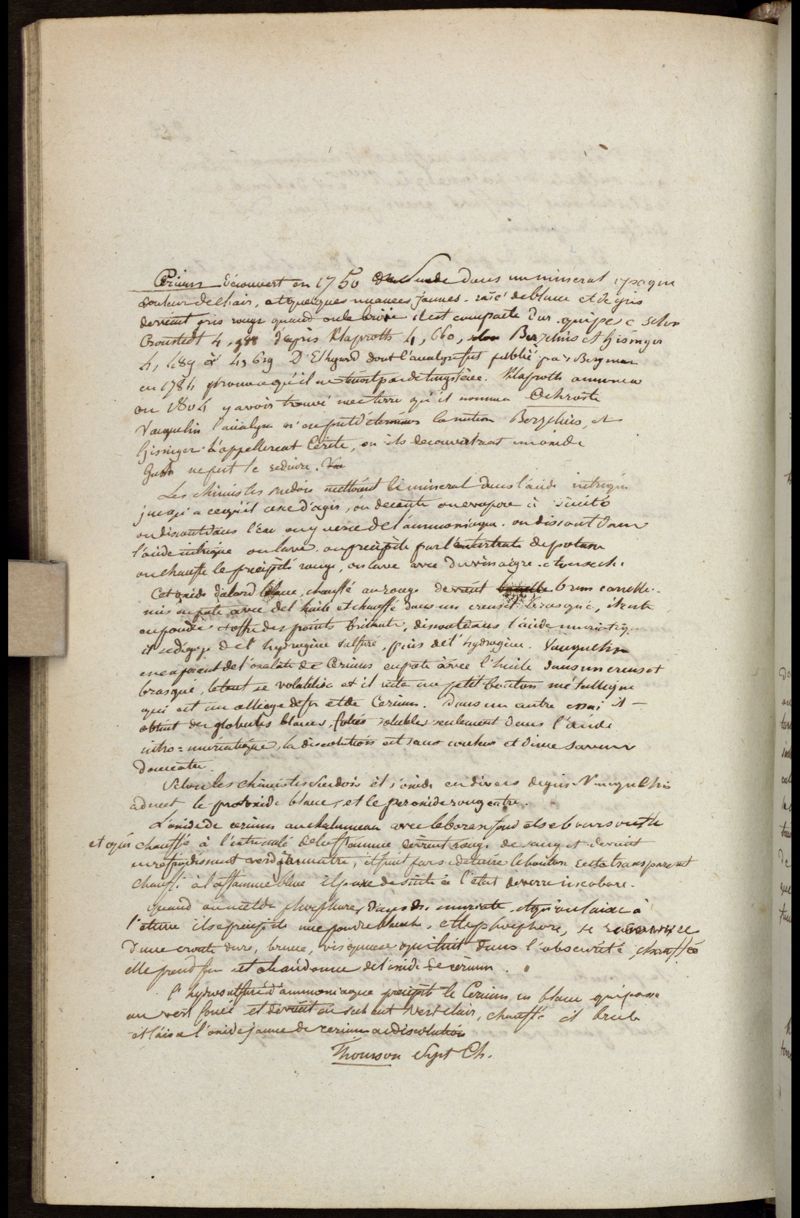 Cerium découvert en 1750 en Suede dans un mineral opaque
couleur de chair, et quelques nuances jaunes. raié de blanc et de gris
devient gris rouge quand on le broie il est compacte dur. qui pese selon
Cronstedt 4,988 d'apres Klaproth 4,660, selon Berzhius et Hisinger
4,489 à 4,619 D'Elhyard dont l'analyse fut publié par Bergman
en 1784 prouva qu'il ne tient pas de tungstene. Klaproth annonca
en 1804 y avoir trouvé une terre qu'il nomma Ochroite
Vauquelin l'analysa n'en put determiner la nature Berzhius, et
Hisinger l'appellerent Cerite, en ils decouvrirent un oxide
Gahn ne put le reduire.
Les chimistes suedois mettoient le mineral dans l'acide nitrique
jusqu'a ce qu'il cesse d'agir, on decante on evapore à siccité
on dissout dans l'eau on y verse de l'ammoniaque. on dissout dans
l'acide nitrique on lave. on precipite par le tartrate de potasse
on chauffe le precipité rougi, on lave avec du vinaigre et on seche.
Cet oxide d'abord blanc, chauffé au rouge devient brun cannelle.
mis en pate avec de l'huile et chauffé dans un creuset brasqué, il reste
en poudre et offre des points brillants, dissous dans l'acide muriatique
il se degage de l'hydrogene sulfuré, puis de l'hydrogene. Vauquelin
en essaiant de l'oxalate de Cerium en pate avec l'huile dans un creuset
brasqué, le tout se volatilisa et il resta un petit bouton metallique
qui est un alliage de fer et de Cerium. Dans un autre essai il
obtint des globules blancs, solubles seulement dans l'acide
nitro=muriatique, la dissolution est sans couleur et d'une saveur
douceatre.
Selon les chimistes Suedois il s'oxide en divers degrés Vauquelin
admet le protoxide blanc, et le peroxide rougeatre.
L'oxide de cerium au chalumeau avec le borax fond et se boursouffle
chauffé à l'extremité de la flamme devient rouge de sang et devient
en refroidissant verd jaunatre, il finit par se detacher le bouton reste transparent
chauffé à la flamme bleue il passe de suite à l'etat de verre incolore.
Quand on met du phosphore dans du muriate
l'etuve il se precipite une poudre blanche. et le phosphore, se recouvre
d'une croute dure, brune, visqueuse qui luit dans l'obscurité, chauffée
elle prend feu et abandonne de l'oxide de cerium.
l'hydrosulfure d'ammoniaque precipite le Cerium en blanc qui passe
au vert foncé et devient en sechant vert clair, chauffé il brule
et laisse l'oxide jaune de cerium
Thomson Syst Ch.